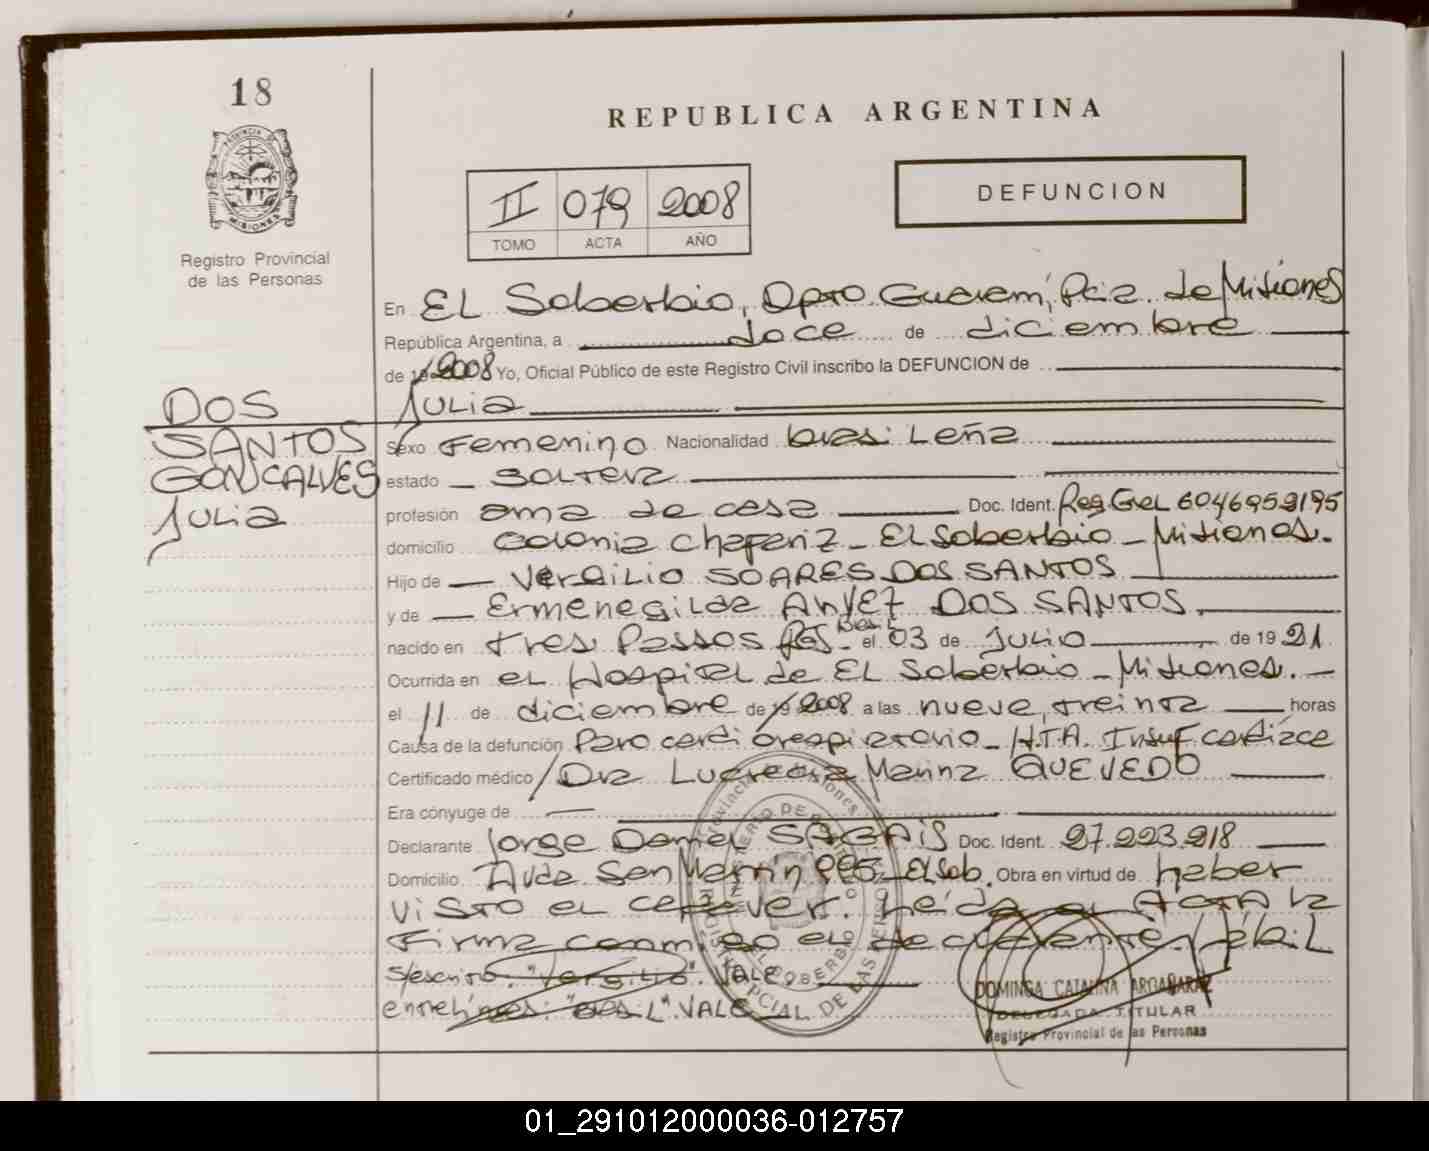 18
REPUBLICA ARGENTINA
DEFUNCION
II 079 2008
TOMO ACTA AÑO
PROVINCIA DE
MISIONES
Registro Provincial
de las Personas
En EL Soberbio, Dpto Guaraní, Pcia. de Misiones
República Argentina, a doce de diciembre
de 19 2008 Yo, Oficial Público de este Registro Civil inscribo la DEFUNCION de
Julia
DOS
SANTOS
GONCALVES
Julia
Sexo Femenino Nacionalidad brasileña
estado soltera
profesión ama de casa Doc. Ident. Reg. Gral 6046959195
domicilio Colonia Chafariz - El Soberbio - Misiones.
Hijo de Vergilio SOARES DOS SANTOS
y de Ermenegilda ALVEZ DOS SANTOS.
nacido en Tres Passos RGS- Brasil el 03 de Julio de 19 21
Ocurrida en el Hospital de El Soberbio - Misiones. -
el 11 de diciembre de 19 2008 a las nueve, treinta horas
Causa de la defunción Paro cardiorespiratorio - H.T.A. Insuf cardiaca
Certificado médico Dra Lucrecia Marina QUEVEDO
Era cónyuge de
Declarante Jorge Daniel Doc. Ident. 27.223.218
Domicilio Avda San Martin El Sob. Obra en virtud de haber
visto el cadaver. Leída el Acta la
Firma conmigo el declarante.
S/escrito: "Vergilio". VALE
entrelíneas: "Brasil". VALE
DOMINGA CATALINA ARGAÑARAZ
DELEGADA TITULAR
Registro Provincial de las Personas
01_291012000036-012757